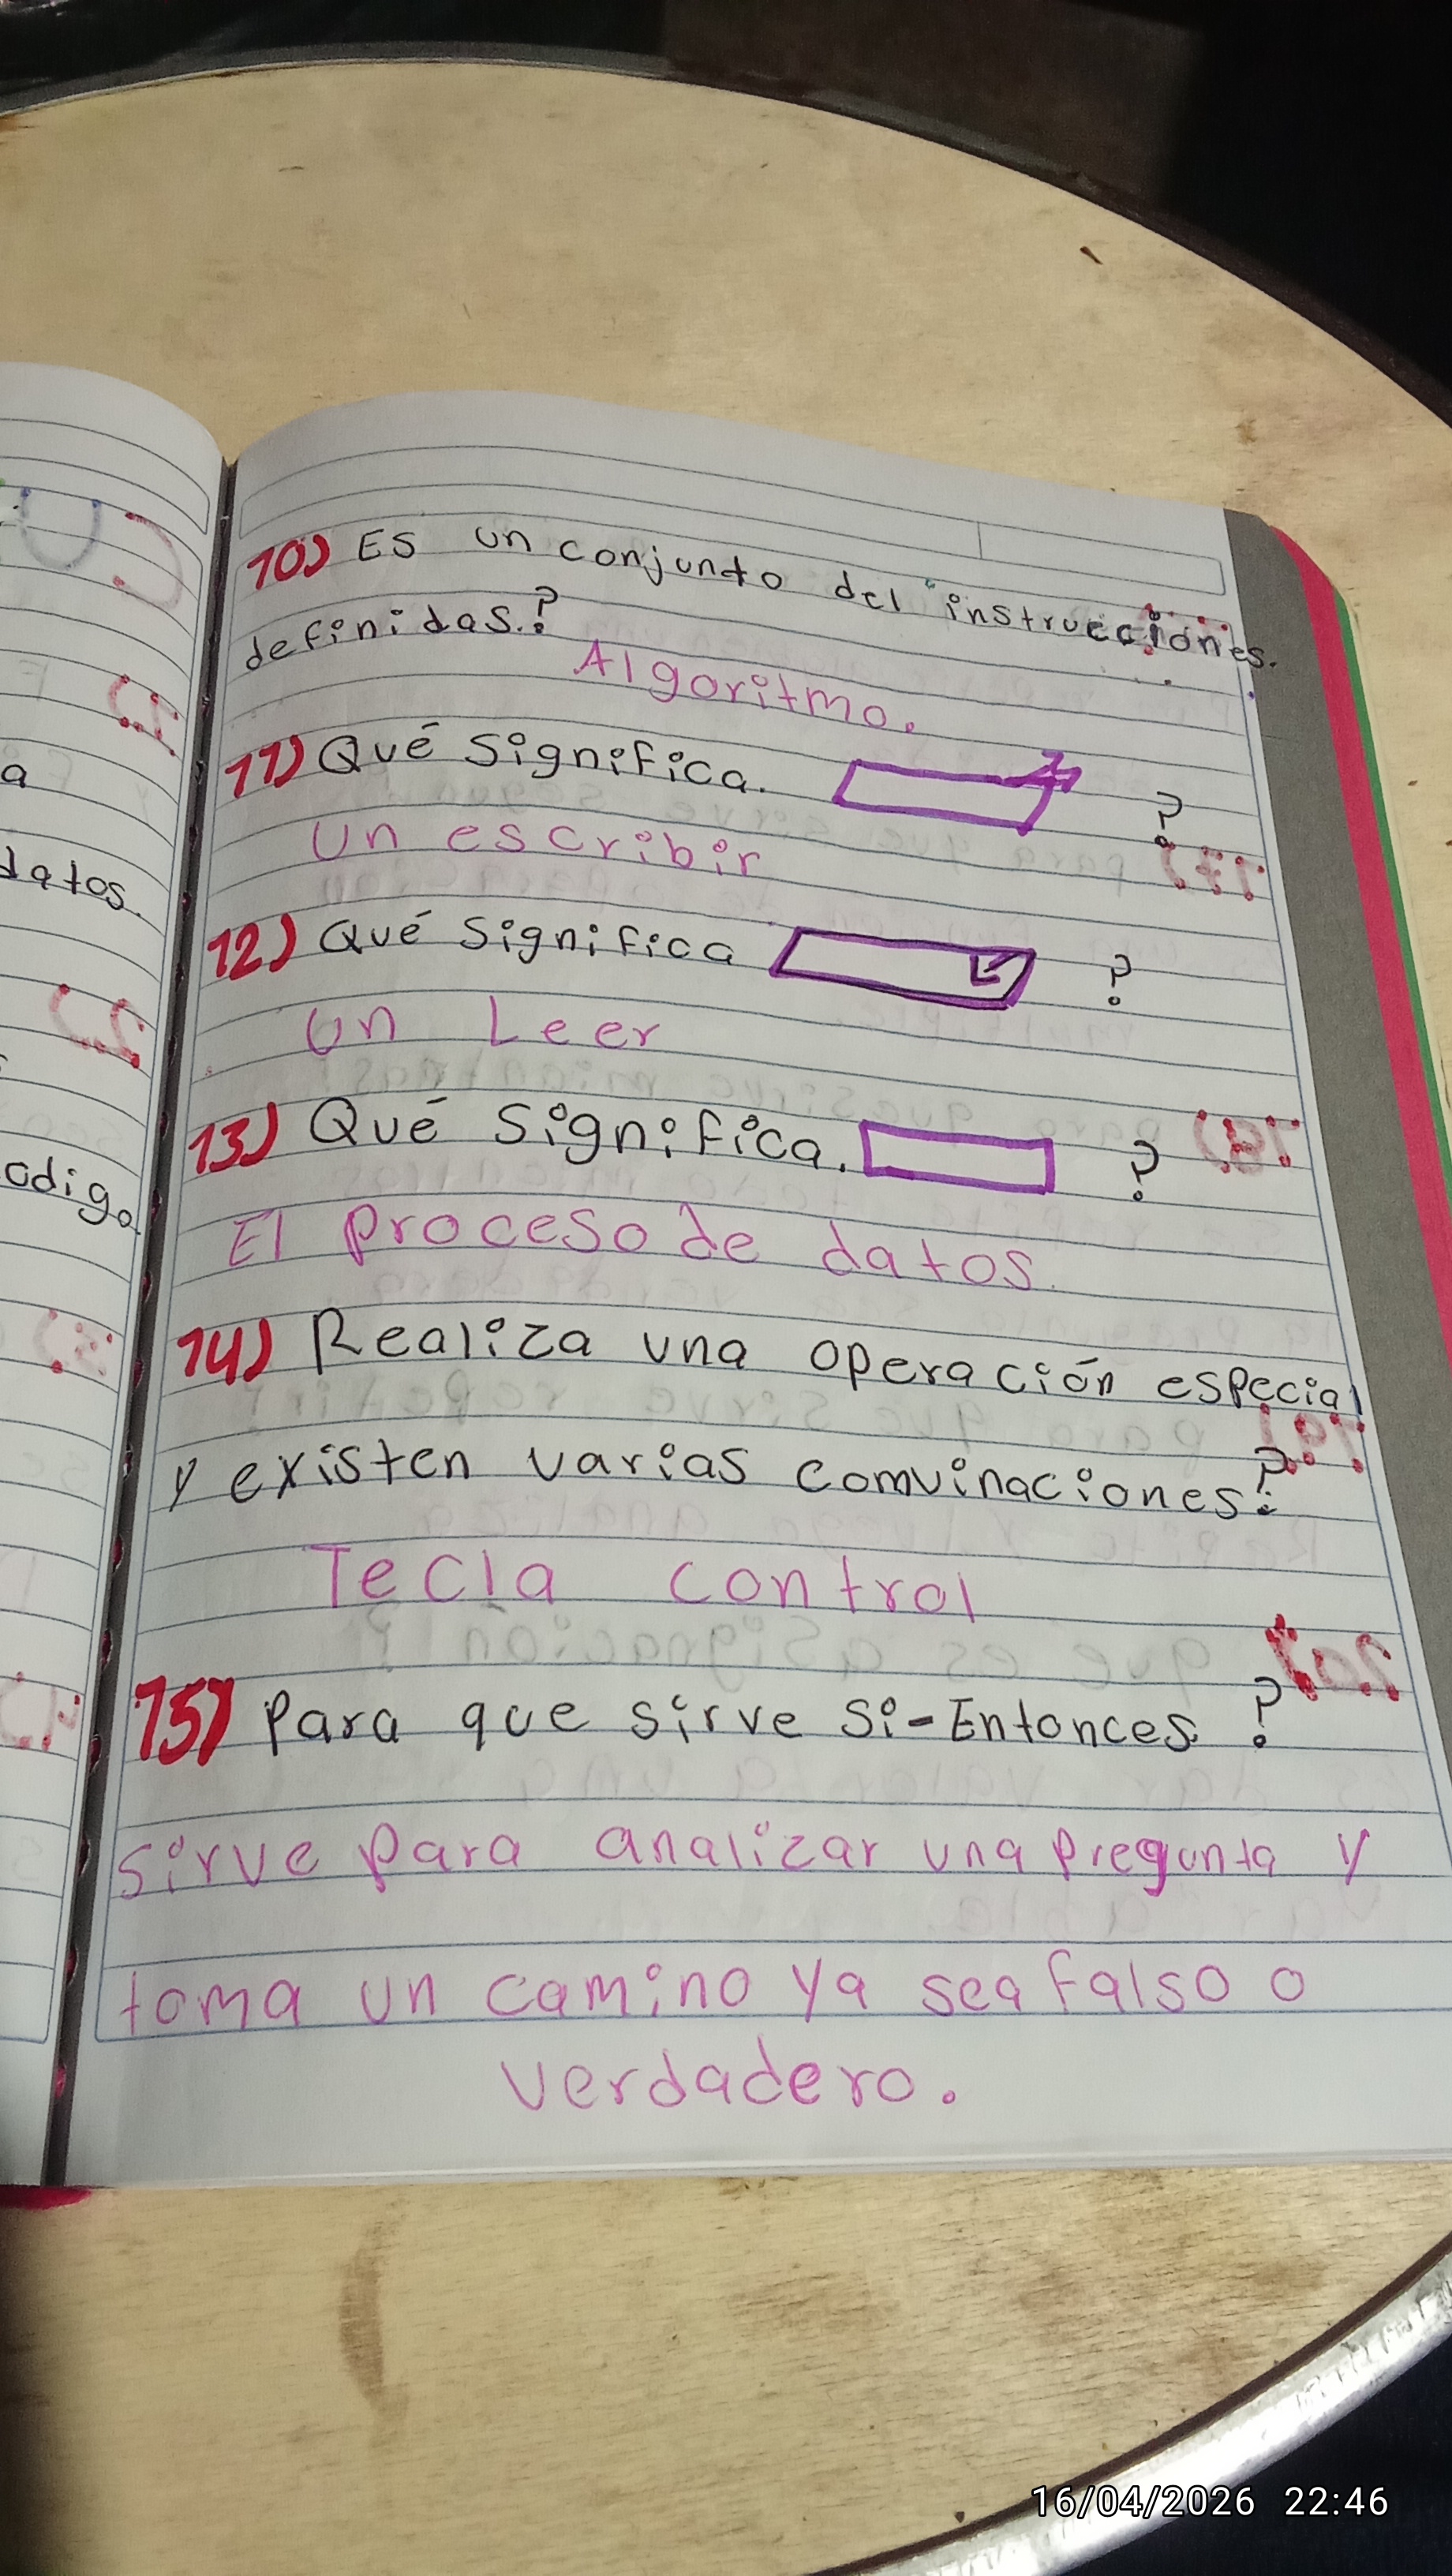 10) Es un conjunto del instrucciones.
definidas.?
Algoritmo.
11) Qué significa. ?
Un escribir
12) Qué significa ?
Un Leer
13) Qué significa. ?
El proceso de datos.
14) Realiza una operación especial
y existen varias comvinaciones?
Tecla control
15) Para que sirve Si-Entonces ?
Sirve para analizar una pregunta y
toma un camino ya sea falso o
verdadero.
a
datos.
odigo
16/04/2026 22:46